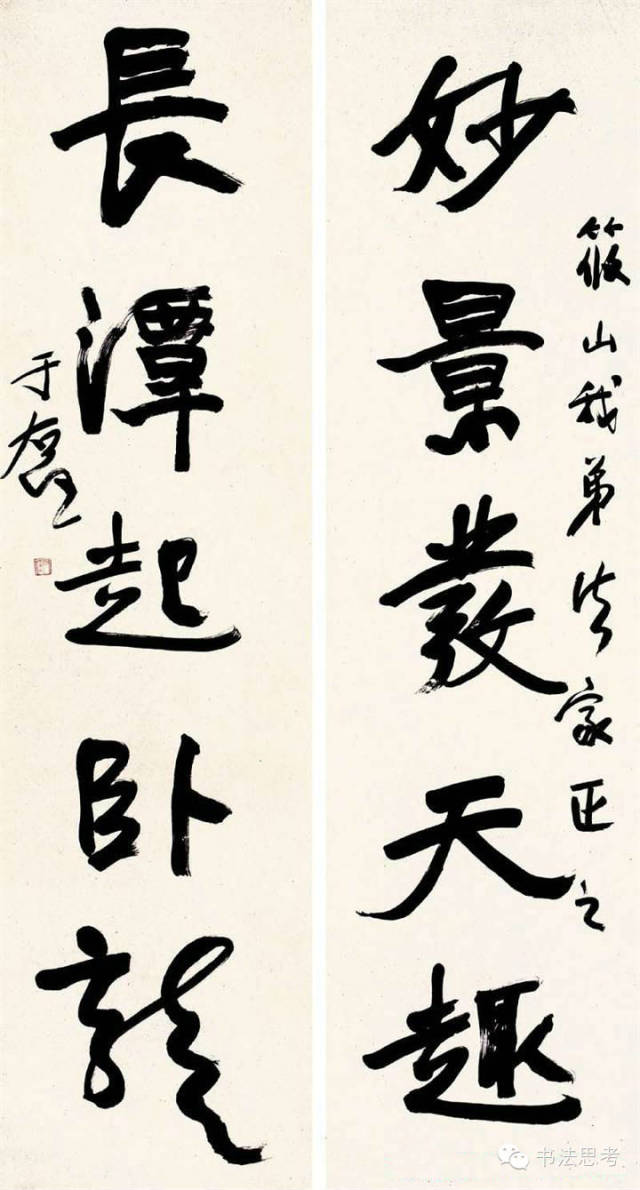 筱山我弟法家正之
妙景發天趣
長潭起卧龍
于右任
书法思考